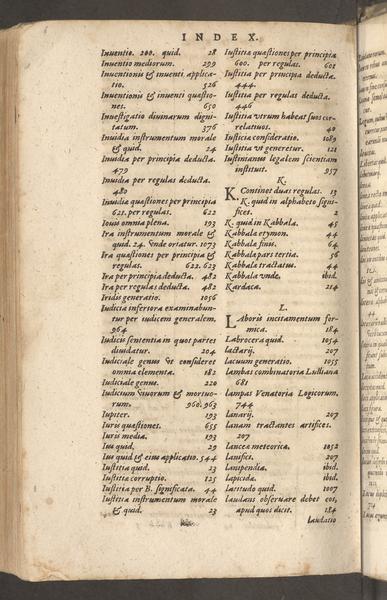 INDEX.
Inuentio. 200. quid. 28
Inuentio mediorum. 299
Inuentionis & inuenti applica-
tio. 526
Inuentionis & inuenti quæstio-
nes. 650
Inuestigatio diuinarum digni-
tatum. 376
Inuidia instrumentum morale
& quid. 24
Inuidia per principia deducta.
479
Inuidia per regulas deducta.
480
Inuidiæ quæstiones per principia
621. per regulas. 622
Iouis omnia plena. 193
Ira instrumentum morale &
quid. 24. vnde oriatur. 1073
Ira quæstiones per principia &
regulas. 622. 623
Ira per principia deducta. 482
Ira per regulas deducta. 482
Iridis generatio. 1056
Iudicia inferiora examinabun-
tur per iudicem generalem.
964
Iudicis sententia in quot partes
diuidatur. 204
Iudiciale genus vt consideret
omnia elementa. 182
Iudiciale genus. 220
Iudicium viuorum & mortuo-
rum. 960. 963
Iupiter. 193
Iuris quæstiones. 655
Iuris media. 193
Ius quid. 29
Ius quid & eius applicatio. 544
Iustitia quid. 23
Iustitia corruptio. 125
Iustitia per B. significata. 44
Iustitia instrumentum morale
& quid. 23
Iustitiæ quæstiones per principia
600. per regulas. 601
Iustitia per principia deducta.
444.
Iustitia per regulas deducta.
446
Iustitia vtrum habeat suos cor-
relatiuos. 40
Iusticia consideratio. 1089
Iustitia vt generetur. 121
Iustinianus legalem scientiam
instituit. 957
K.
K. Continet duas regulas. 13
K. quid in alphabeto signi-
ficet. 2
K. quid in Kabbala. 45
Kabbala etymon. 44
Kabbala finis. 64
Kabbala pars tertia. 56
Kabbala tractatus. 44
Kabbala vnde. ibid.
Kardaca. 214
L.
LAboris incitamentum for-
mica. 184
Labrocera quid. 1054
lactarij. 207
Lacuum generatio. 1057
Lambas combinatoria Lulliana
681
lampas Venatoria Logicorum.
744
Lanarij. 207
Lanam tractantes artifices.
207
Lancea meteorica. 1052
Lanifici. 207
Lanipendia. ibid.
Lapicida. ibid.
Latitudo quid. 1007
laudans obseruare debet eos,
apud quos dicit. 184
laudatio